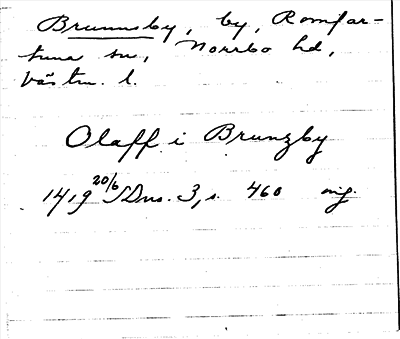 Brunnsby, by, Romfar-
tuna sn, Norrbo hd,
Västm. l.
Olaff i Brunzby
1419 20/6 SDns. 3, s. 460 orig.